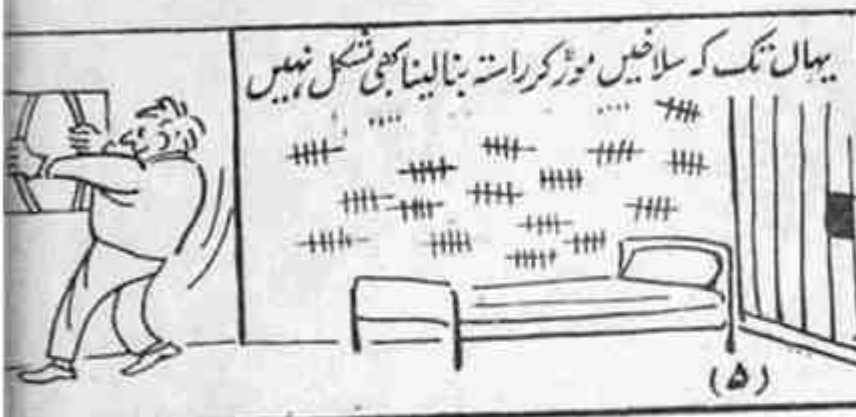 یہاں تک کہ سلاخیں موڑ کر راستہ بنا لینا بھی مشکل نہیں
(۵)